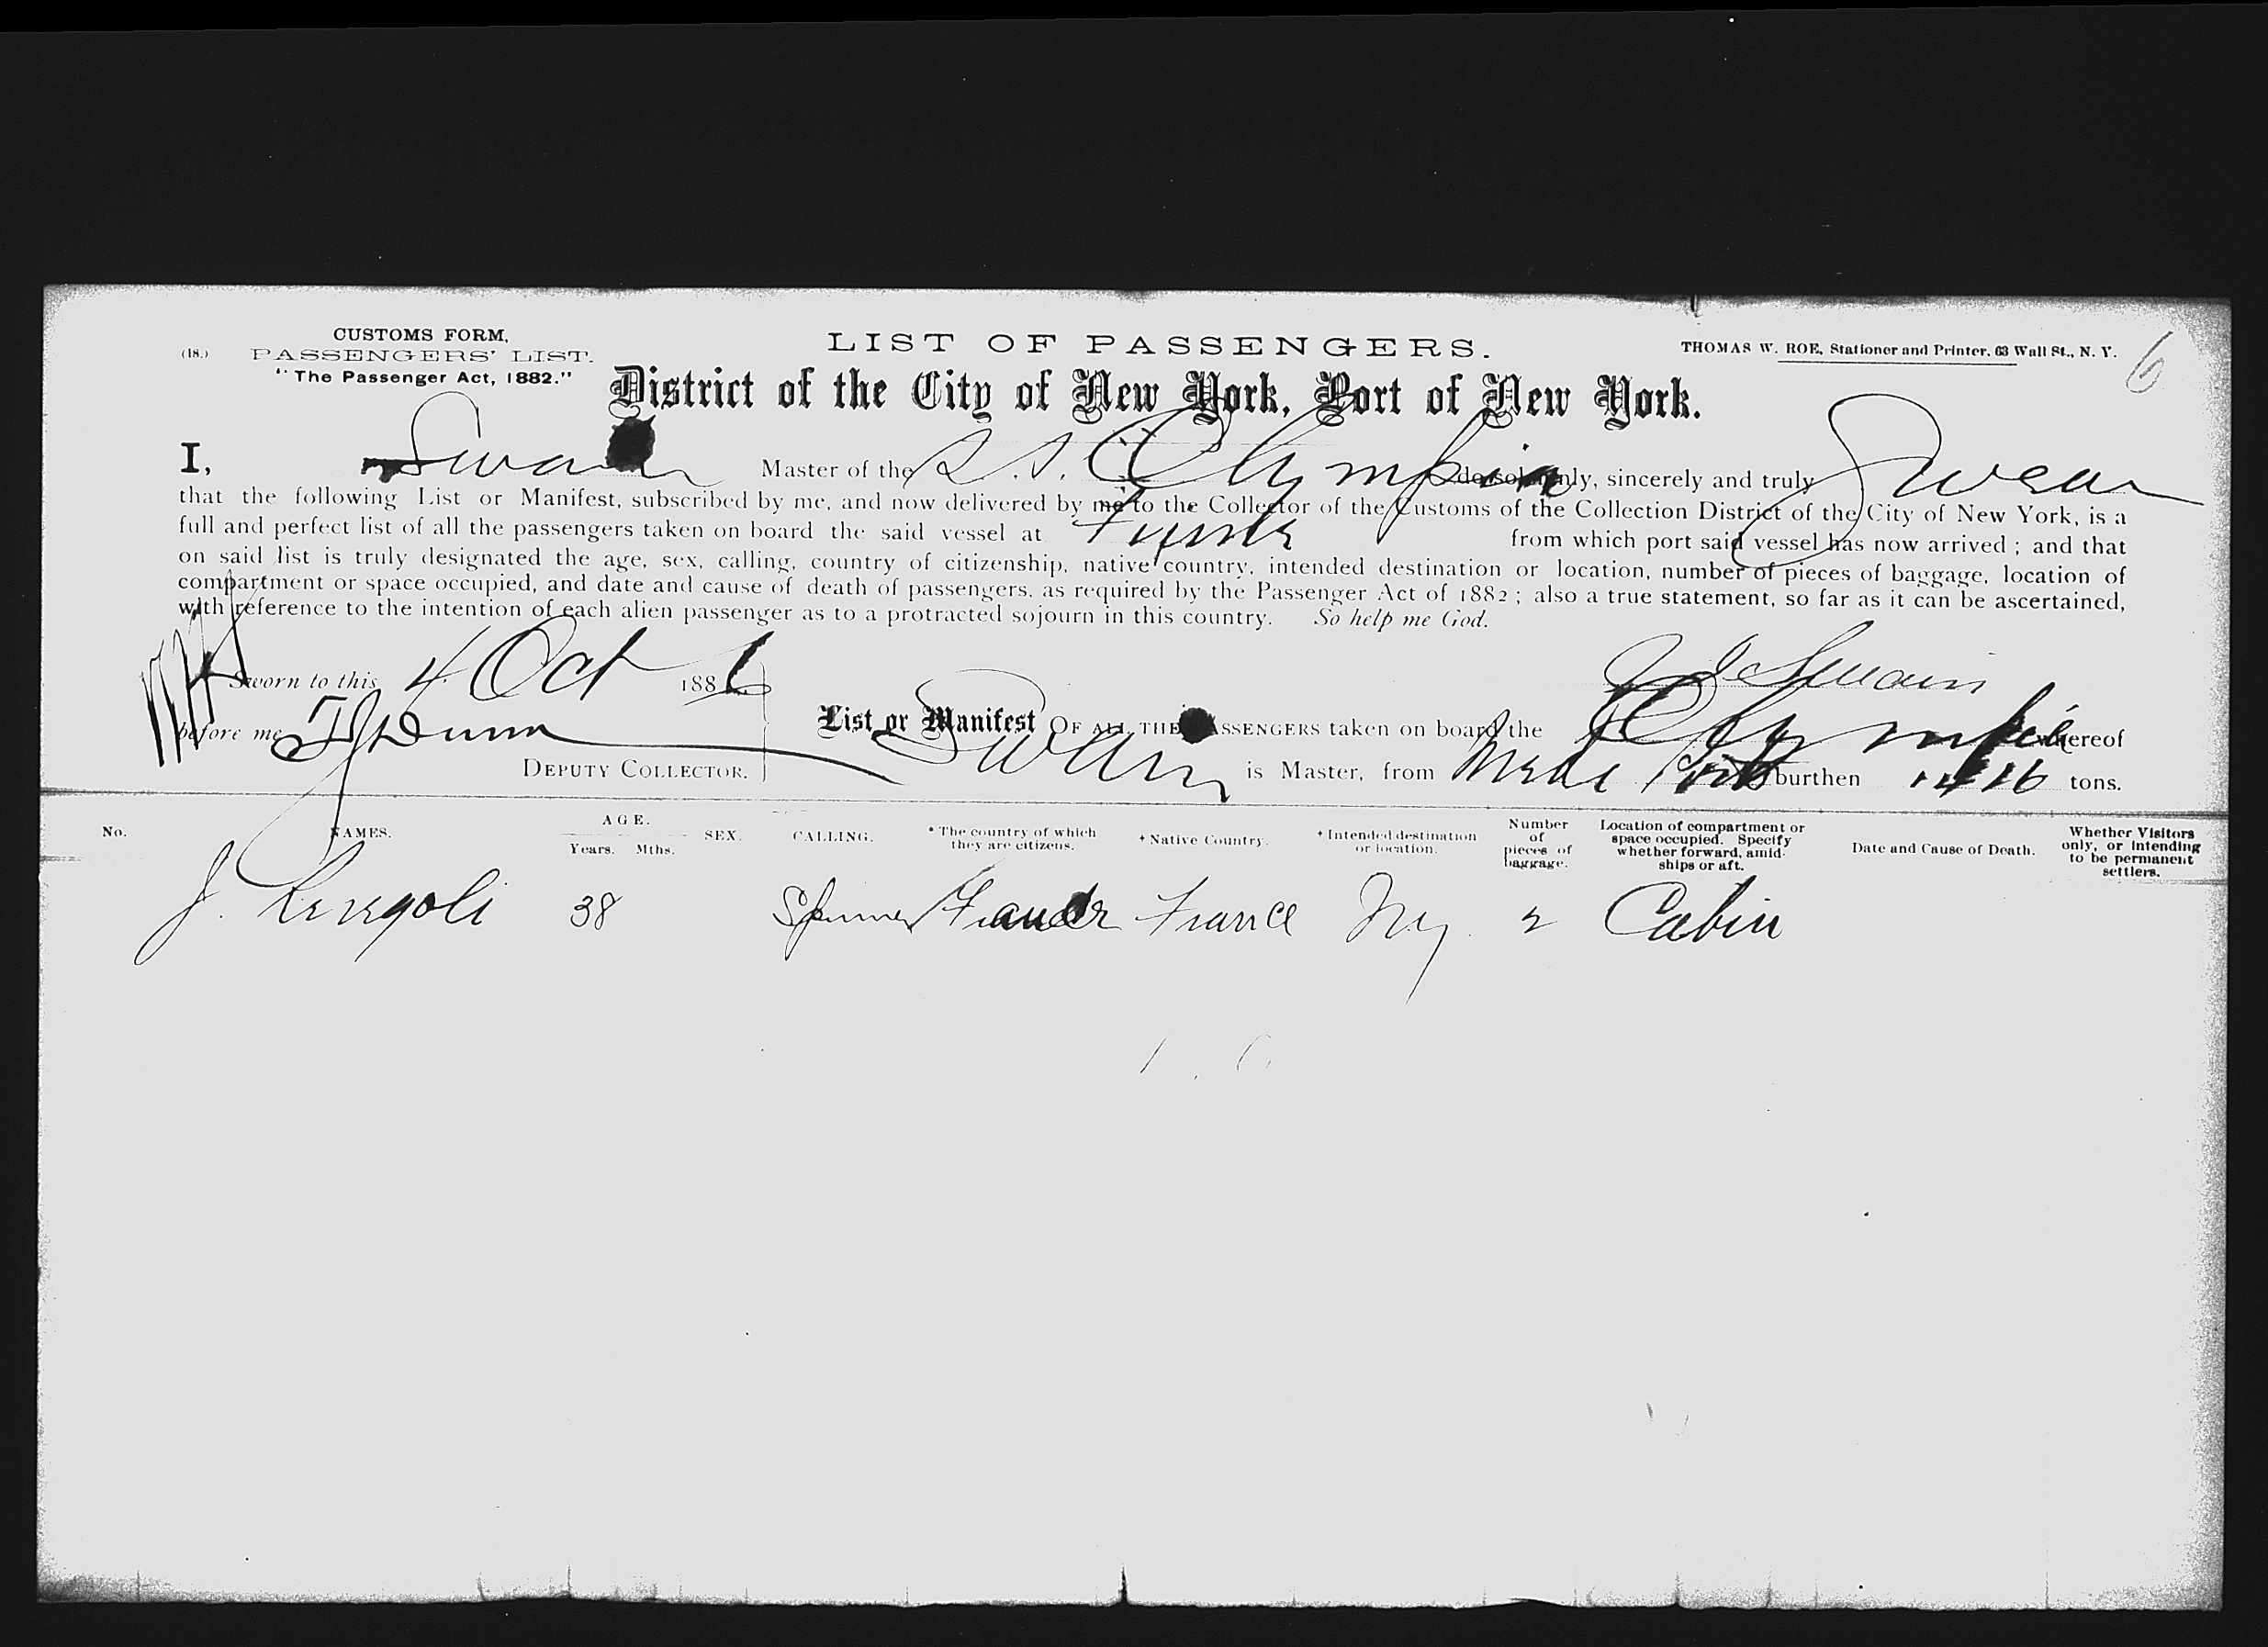 CUSTOMS FORM,
(18.) PASSENGERS' LIST.
"The Passenger Act, 1882."
LIST OF PASSENGERS.
THOMAS W. ROE, Stationer and Printer, 63 Wall St., N. Y.
6
District of the City of New York, Port of New York.
I, Swain Master of the S. S. Olympia do solemnly, sincerely and truly Swear
that the following List or Manifest, subscribed by me, and now delivered by me to the Collector of the Customs of the Collection District of the City of New York, is a
full and perfect list of all the passengers taken on board the said vessel at from which port said vessel has now arrived ; and that
on said list is truly designated the age, sex, calling, country of citizenship, native country, intended destination or location, number of pieces of baggage, location of
compartment or space occupied, and date and cause of death of passengers, as required by the Passenger Act of 1882 ; also a true statement, so far as it can be ascertained,
with reference to the intention of each alien passenger as to a protracted sojourn in this country. So help me God.
Sworn to this 4 Oct 1886 Swain
before me Dunn
DEPUTY COLLECTOR.
List or Manifest OF ALL THE PASSENGERS taken on board the Olympia whereof
Swain is Master, from burthen tons.
No. NAMES. AGE. Years. Mths. SEX. CALLING. * The country of which they are citizens. + Native Country. + Intended destination or location. Number of pieces of baggage. Location of compartment or space occupied. Specify whether forward, amidships or aft. Date and Cause of Death. Whether Visitors only, or intending to be permanent settlers.
J. 38 France Ny 2 Cabin